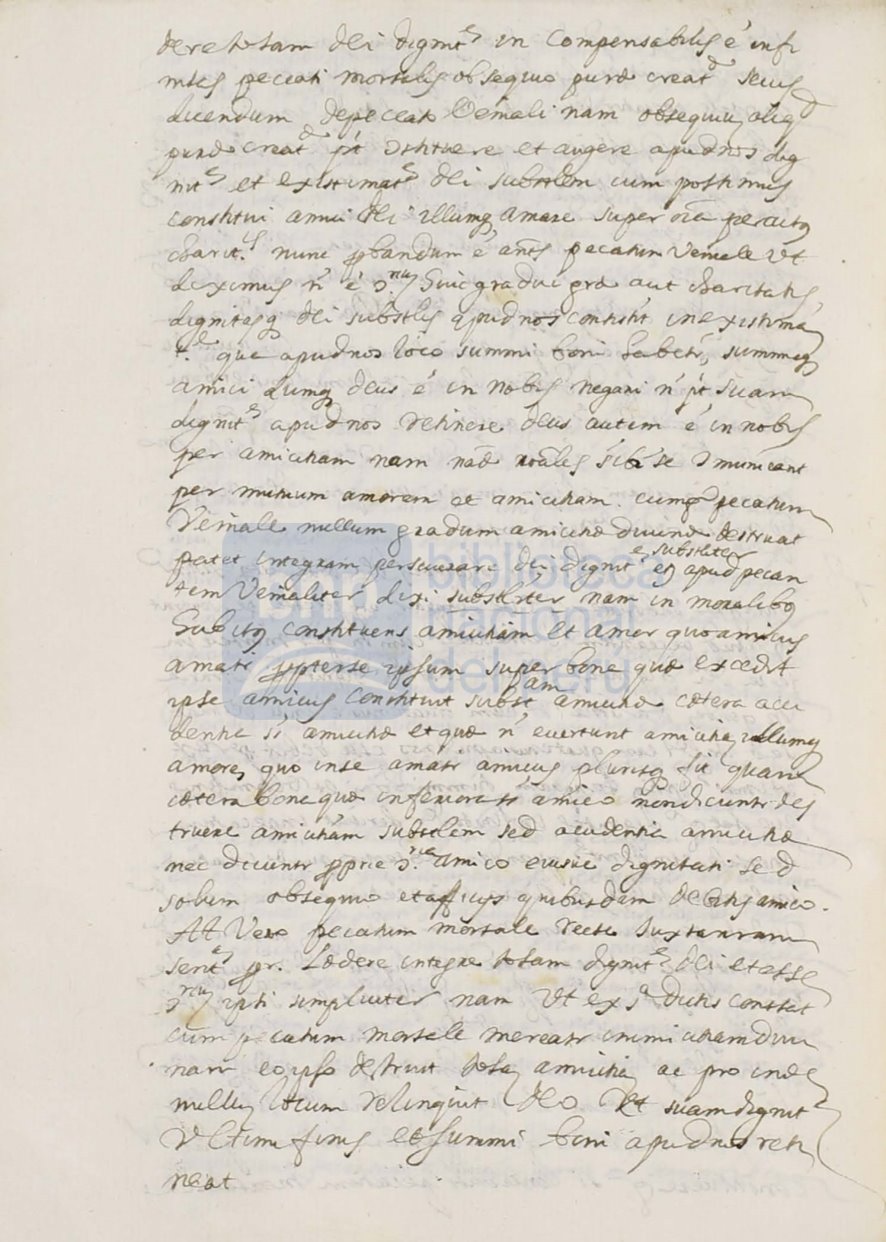 dere totam dei dignit.e in compensabilis é infi
nites peccati mortalis obsequio puræ creat.æ secus
dicendum de peccato Veniali nam obsequiũ aliq.d
puræ creat.æ pt Ɔstituere et augere apud nos dig
nit.e et existimat.e dei substlem cum possimus
constitui amici dei illumq amare super oia percitq
charit.is nunc probandum é añs pecatum Veniale Vt
diximus n é Ɔ.rium huic gradui græ aut charitatis,
dignitasq dei substlis apud nos consistit in existima
t.e que apud nos loco summi boni habetr, summiq
amici dumq deus é in nobis negari n pt suam
dignit.e apud nos retinere deus autem é in nobis
per amicitiam nam naæ roales sibi se Ɔmunicant
per mutuum amorem et amicitiam. cumq pecatum
Veniale nullum gradum amicitiæ divinæ destruat
patet integram perseverare dei dignit.e substliter
apud pecan
tem Venialiter dixi substliter nam in moralibq
habitq constituens amicitiam et amor quo amicus
amatr propter se ipsum super bona quæ excedit
ipse amicus constituit subst.am amicitiæ cætera acci
dentia st amicitiæ et quæ n evertunt amicitiã illumq
amorẽ quo in se amatr amicus plurisq fit quam
cætera bona quæ inferiora st amico non dicuntr des
truere amicitiam substlem sed accidentia amicitiæ
nec dicuntr proprie Ɔ.ria amico eiusve dignitati sed
solum obsequio et officijs quibusdam debitis amico.
At Vero pecatum mortale recte iuxta nram
sent.e pr. Lædere integre totam dignit.e dei et esse
Ɔ.rium ipsi simpliciter nam Vt ex s.a dictis constat
cum pecatum mortale mereatr inimicitiam divi
nam eo ipso destruit totã amicitiã ac proinde
nullũ locum relinquit deo Vt suam dignit.e
Vltimi finis et summi boni apud nos reti
neat
biblioteca
nacional
del perú
bnp